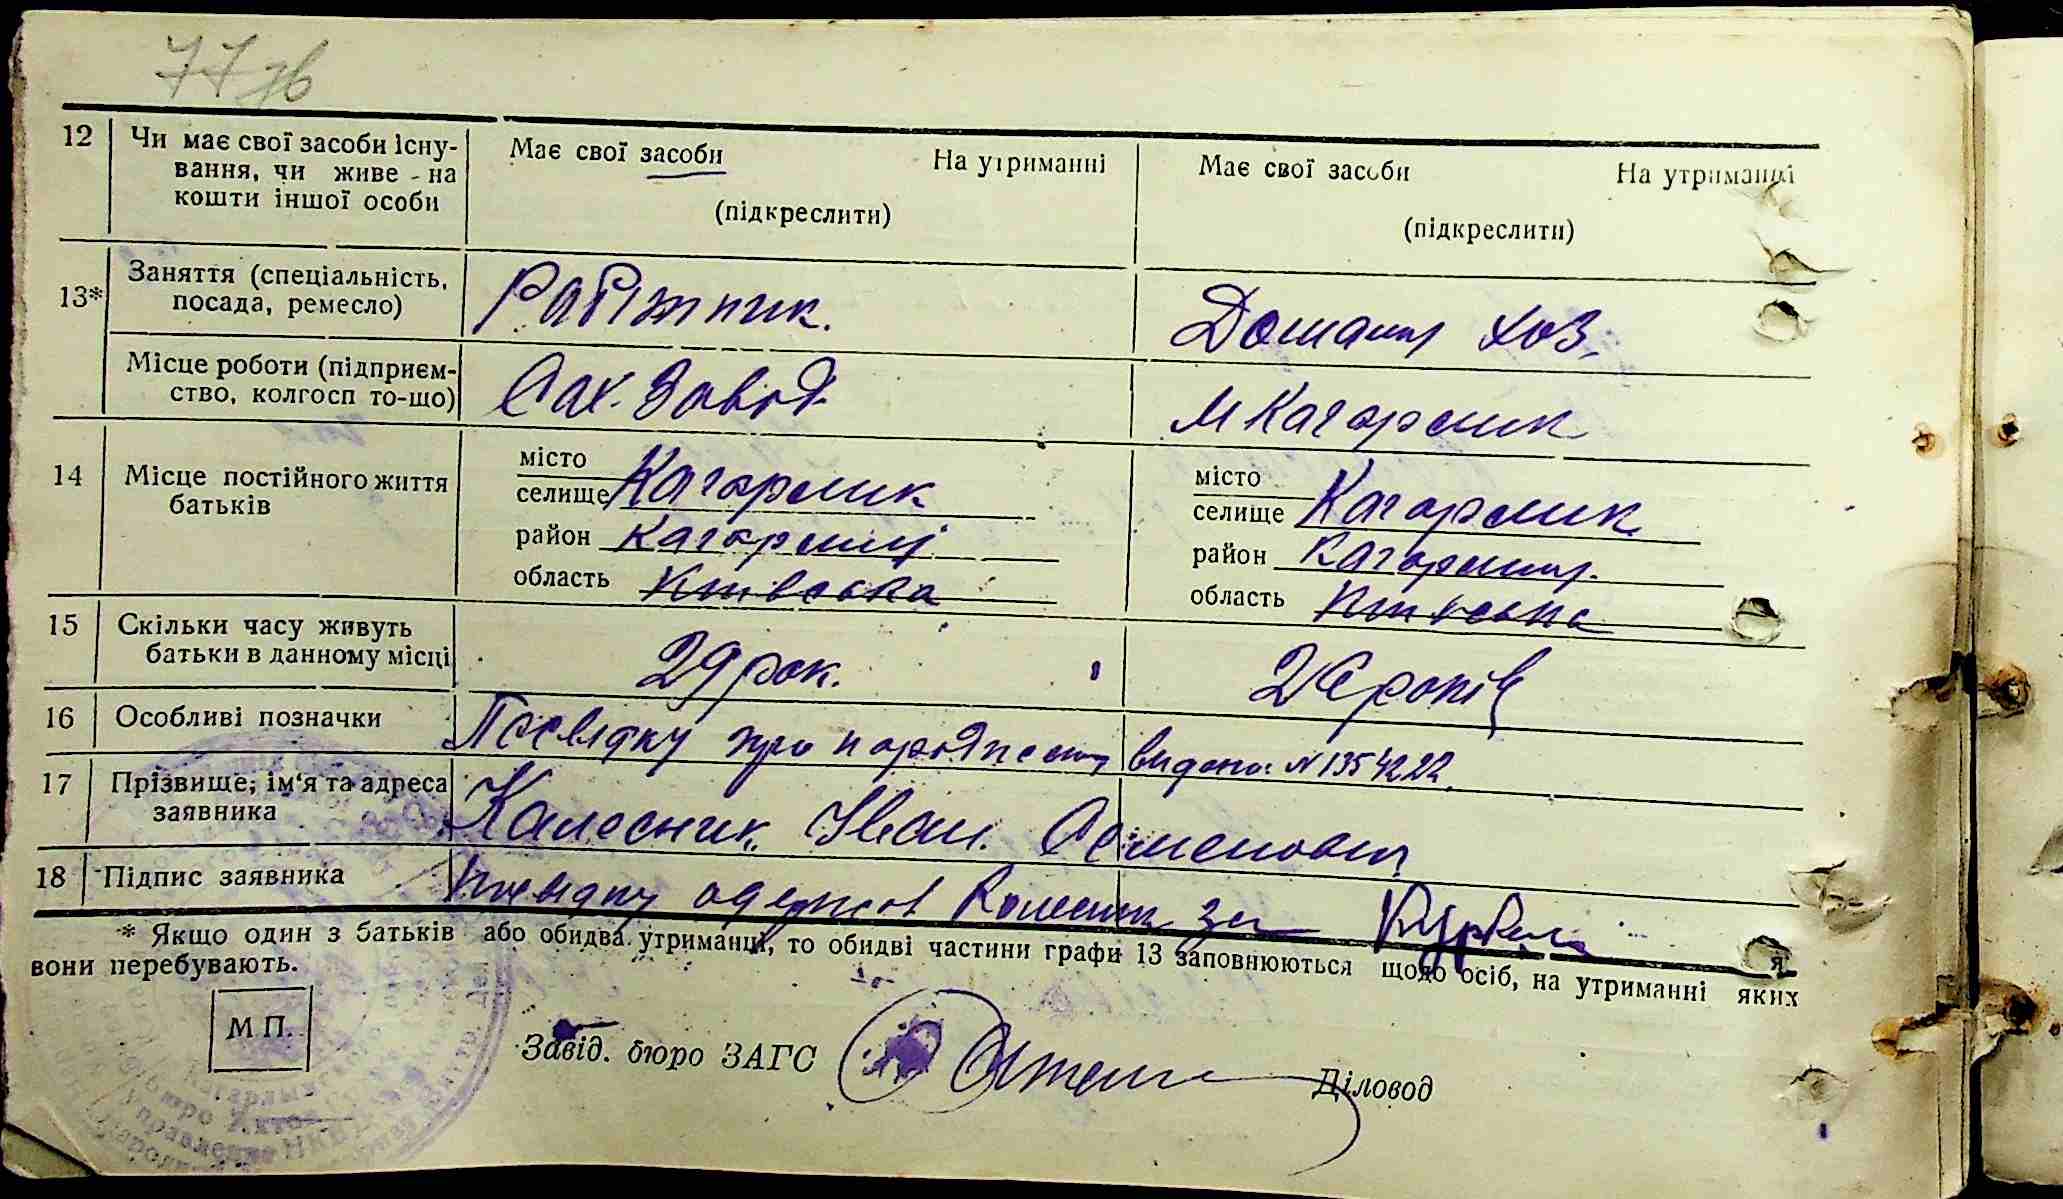 77 зв
12 Чи має свої засоби існу- Має свої засоби На утриманні Має свої засоби На утриманні
вання, чи живе на
кошти іншої особи (підкреслити) (підкреслити)
13* Заняття (спеціальність, Рабітник. Домашн хоз.
посада, ремесло)
Місце роботи (підприєм- Сах. Завод. м Кагарлик
ство, колгосп то-що)
14 Місце постійного життя місто місто
батьків селище Кагарлик селище Кагарлик
район район
область Київська область Київська
15 Скільки часу живуть 29 рок. років
батьки в данному місці
16 Особливі позначки про видано: N 1354222
17 Прізвище, ім'я та адреса Калесник Іван. Семенович
заявника
18 Підпис заявника одержав за
* Якщо один з батьків або обидва утриманці, то обидві частини графи 13 заповнюються щодо осіб, на утриманні яких
вони перебувають.
М П. Завід. бюро ЗАГС Діловод